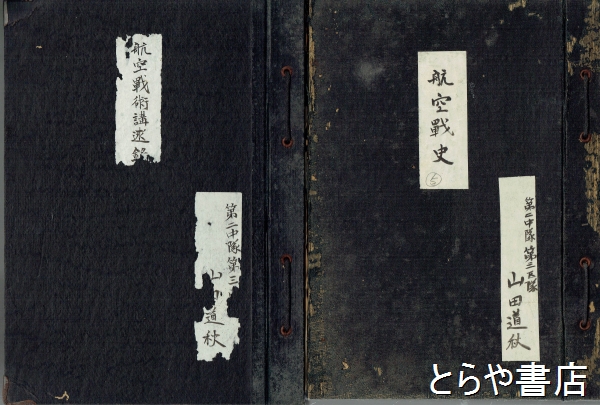 航空戰術講述録
第二中隊第三
山田道秋
航空戰史
5
第二中隊第三区隊
山田道秋
とらや書店